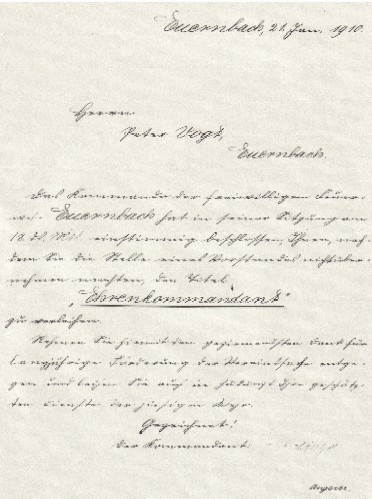 Euernbach, 21. Jan. 1910.
Herrn
Peter Vogt,
Euernbach.
Das Kommando der freiwilligen Feuer-
Euernbach hat in seiner Sitzung am
18. ds. Mts. einstimmig beschlossen, Ihnen, nach-
dem Sie die Stelle eines Vorstandes nicht über-
nehmen wollten, den Titel
"Ehrenkommandant"
zu verleihen.
Nehmen Sie hiermit den geziemendsten Dank für
langjährige Förderung der Vereinssache entge-
gen und leihen Sie auch in Zukunft Ihre geschätz-
ten Dienste der hiesigen Wehr.
Gezeichnet!
Der Kommandant